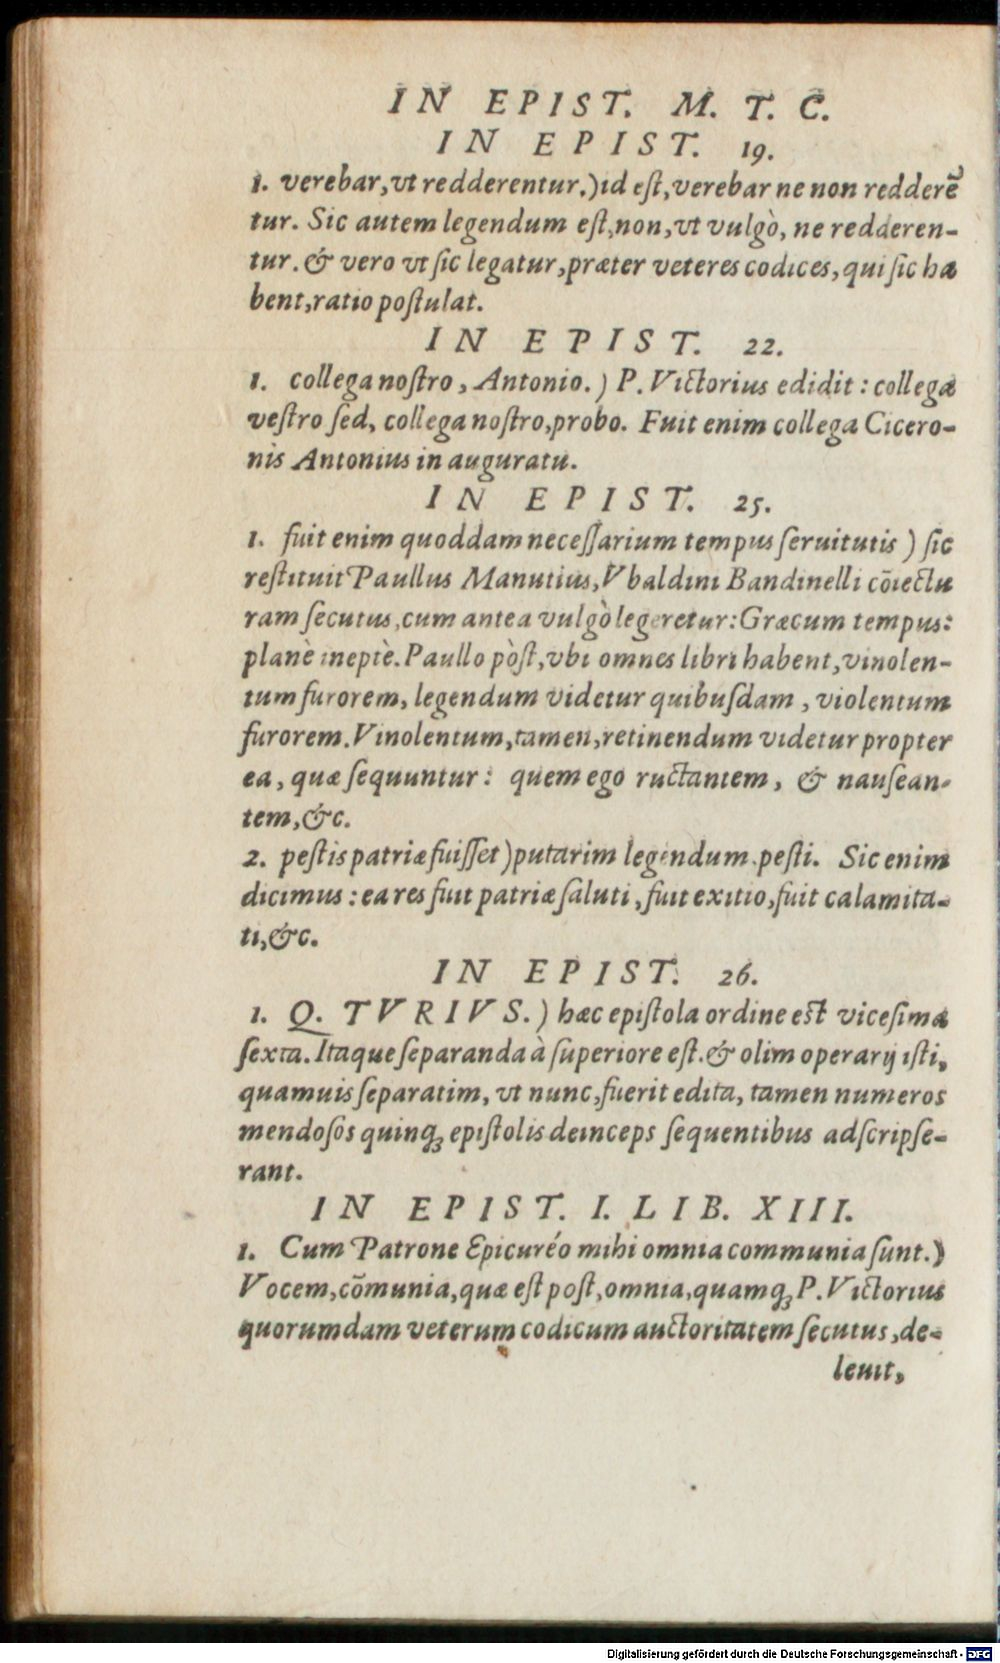 IN EPIST. M. T. C.
IN EPIST. 19.
1. verebar, vt redderentur.) id eſt, verebar ne non redderẽ
tur. Sic autem legendum eſt, non, vt vulgò, ne redderen-
tur. & vero vt ſic legatur, præter veteres codices, qui ſic ha
bent, ratio poſtulat.
IN EPIST. 22.
1. collega noſtro, Antonio.) P. Victorius edidit: collega
veſtro ſed, collega noſtro, probo. Fuit enim collega Cicero-
nis Antonius in auguratu.
IN EPIST. 25.
1. fuit enim quoddam neceſſarium tempus ſeruitutis) ſic
reſtituit Paullus Manutius, Vbaldini Bandinelli cõiectu
ram ſecutus, cum antea vulgò legeretur: Græcum tempus:
planè ineptè. Paullo pòſt, vbi omnes libri habent, vinolen-
tum furorem, legendum videtur quibuſdam, violentum
furorem. Vinolentum, tamen, retinendum videtur propter
ea, quæ ſequuntur: quem ego ructantem, & nauſean-
tem, &c.
2. peſtis patriæ fuiſſet) putarim legendum peſti. Sic enim
dicimus: ea res fuit patriæ ſaluti, fuit exitio, fuit calamita-
ti, &c.
IN EPIST. 26.
1. Q. TVRIVS.) hæc epiſtola ordine est viceſima
ſexta. Itaque ſeparanda à ſuperiore eſt. & olim operarij iſti,
quamuis ſeparatim, vt nunc, fuerit edita, tamen numeros
mendoſos quinq; epiſtolis deinceps ſequentibus adſcripſe-
rant.
IN EPIST. I. LIB. XIII.
1. Cum Patrone Epicuréo mihi omnia communia ſunt.)
Vocem, cõmunia, quæ eſt poſt, omnia, quamq; P. Victorius
quorumdam veterum codicum auctoritatem ſecutus, de-
leuit,
Digitalisierung gefördert durch die Deutsche Forschungsgemeinschaft - DFG